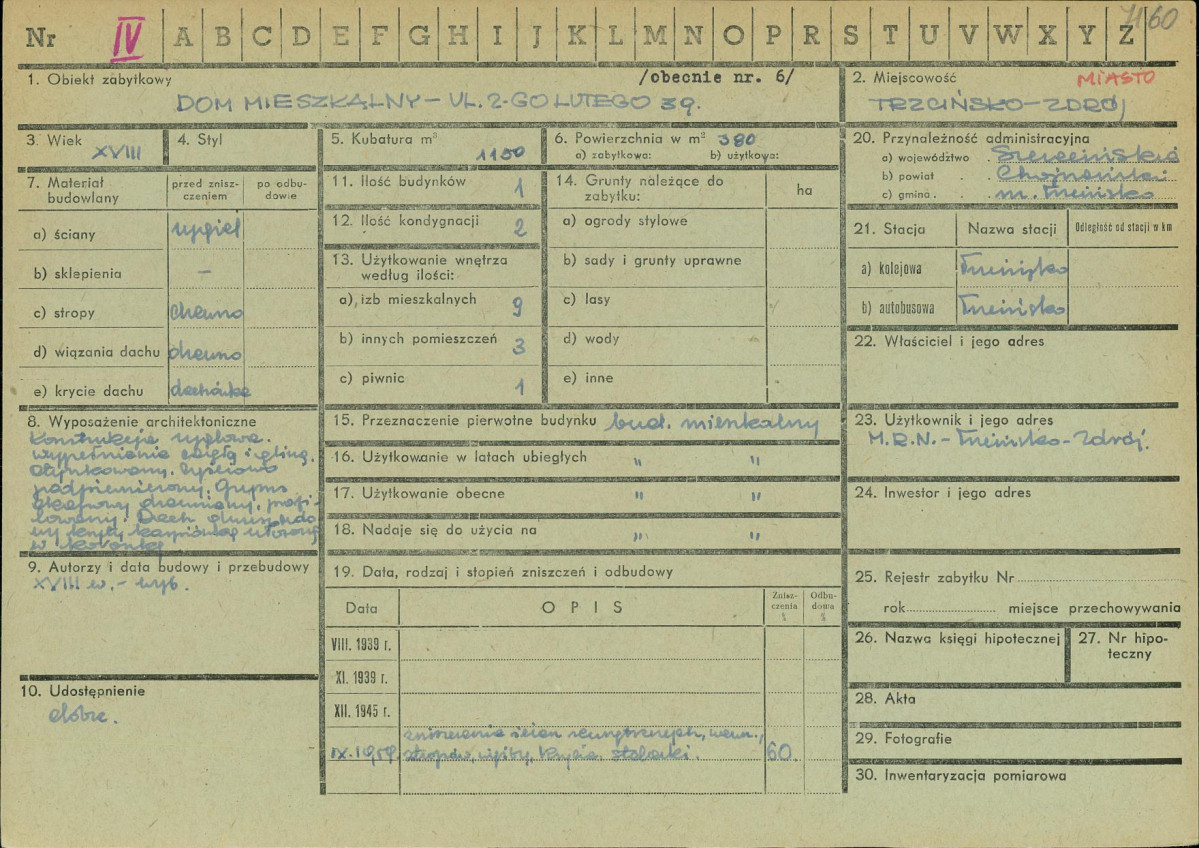 Nr IV A B C D E F G H I J K L M N O P R S T U V W X Y Z 7160
1. Obiekt zabytkowy /obecnie nr. 6/
DOM MIESZKALNY – UL. 2-GO LUTEGO 39.
2. Miejscowość MIASTO
TRZCIŃSKO-ZDRÓJ
3. Wiek XVIII
4. Styl
5. Kubatura m³ 1150
6. Powierzchnia w m² 380
a) zabytkowa: b) użytkowa:
20. Przynależność administracyjna
a) województwo . Szczecińskie
b) powiat . . Chojnański
c) gmina . . m. Trzcińsko
7. Materiał budowlany
przed zniszczeniem
po odbudowie
a) ściany rygiel
b) sklepienia –
c) stropy drewno
d) wiązania dachu drewno
e) krycie dachu dachówka
11. Ilość budynków 1
12. Ilość kondygnacji 2
13. Użytkowanie wnętrza
według ilości:
a) izb mieszkalnych 9
b) innych pomieszczeń 3
c) piwnic 1
14. Grunty należące do
zabytku: ha
a) ogrody stylowe
b) sady i grunty uprawne
c) lasy
d) wody
e) inne
21. Stacja Nazwa stacji Odległość od stacji w km
a) kolejowa Trzcińsko
b) autobusowa Trzcińsko
22. Właściciel i jego adres
8. Wyposażenie architektoniczne
Konstrukcja ryglowa.
wypełnienie cegłą i gliną,
otynkowany.
podpiwniczony. Gzyms
okapowy drewniany, profi-
lowany. Dach
kryty karpiówką
w koronkę
9. Autorzy i data budowy i przebudowy
XVIII w. – wyb.
10. Udostępnienie
dobre.
15. Przeznaczenie pierwotne budynku bud. mieszkalny
16. Użytkowanie w latach ubiegłych " "
17. Użytkowanie obecne " "
18. Nadaje się do użycia na " "
19. Data, rodzaj i stopień zniszczeń i odbudowy
Data OPIS Zniszczenia % Odbudowa %
VIII. 1939 r.
XI. 1939 r.
XII. 1945 r.
zniszczenia ścian zewnętrznych, wewn.,
IX. 1959. stropów, więźby, krycia, stolarki. 60.
23. Użytkownik i jego adres
M.R.N. – Trzcińsko-Zdrój.
24. Inwestor i jego adres
25. Rejestr zabytku Nr
rok miejsce przechowywania
26. Nazwa księgi hipotecznej
27. Nr hipo-
teczny
28. Akta
29. Fotografie
30. Inwentaryzacja pomiarowa